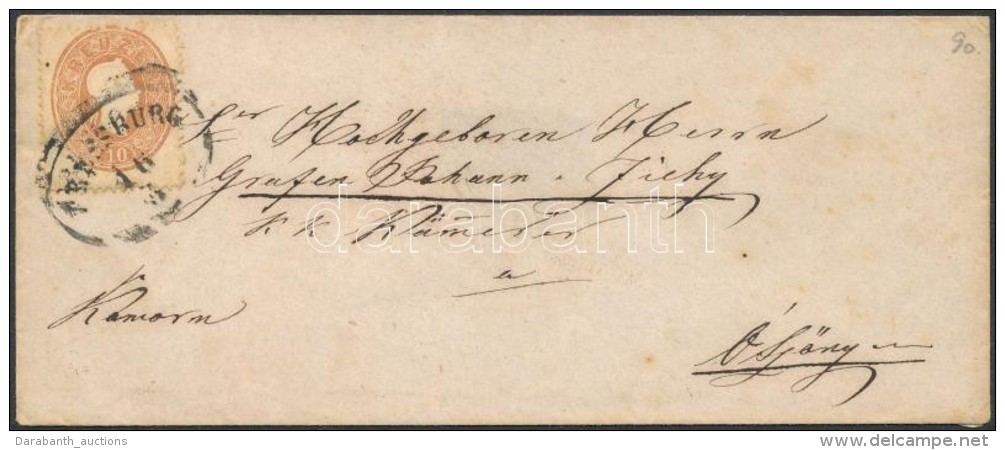 90.
KREUZER
10
PRESSBURG
16
Sr Hochgeboren Herrn
Grafen Johann Zichy
k k Kämerer
a
Komorn
Ó Szöny
darabanth
Darabanth_auctions
www.delcampe.net